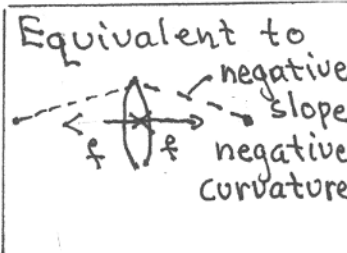 Equivalent to
negative
slope
f f
negative
curvature